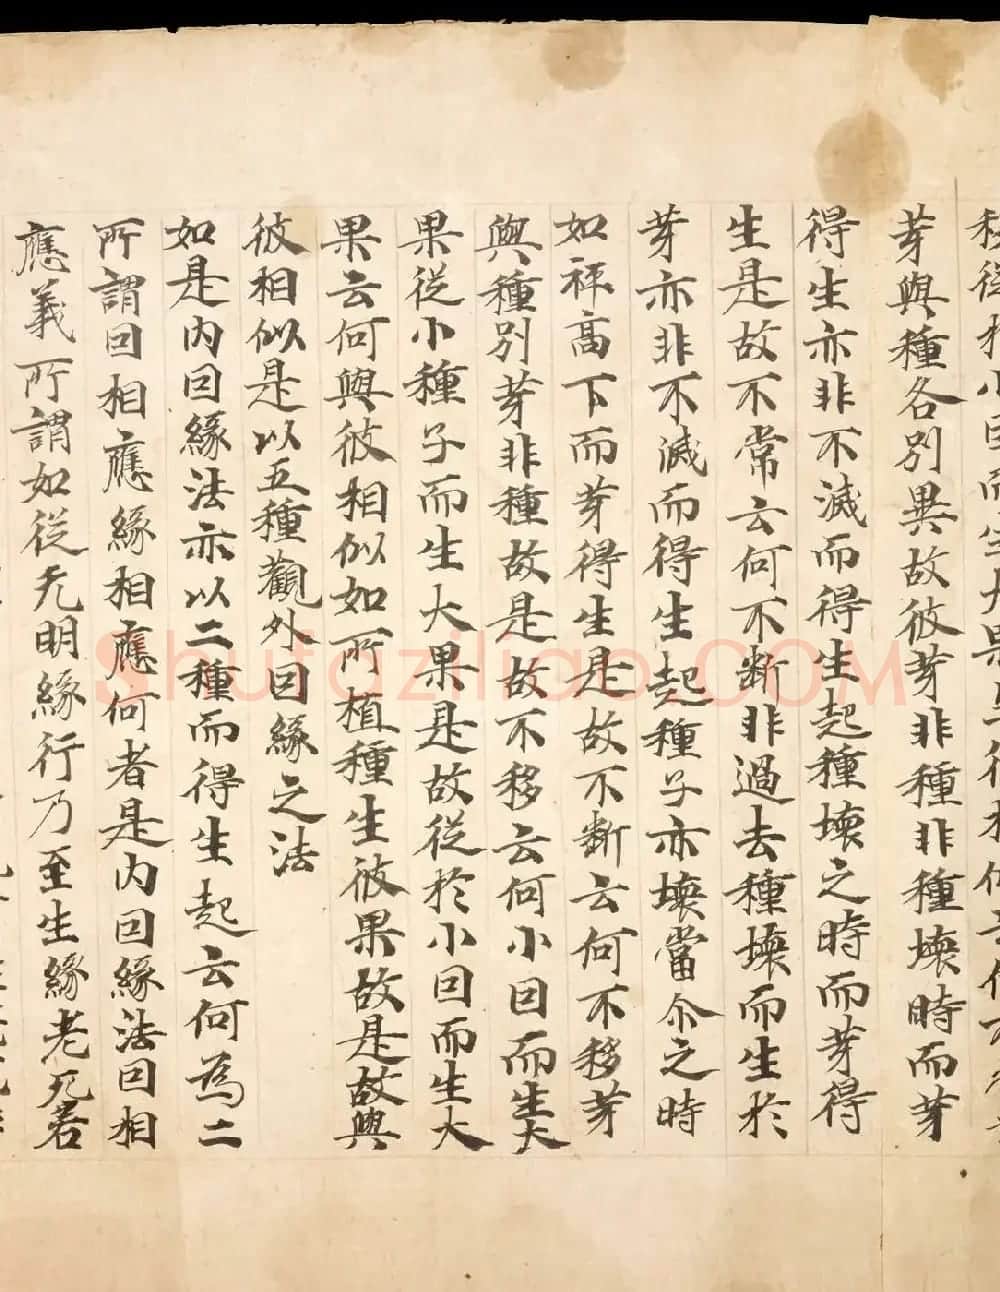 芽與種各別異故彼芽非種非種壞時而芽
得生亦非不滅而得生起種壞之時而芽得
生是故不常云何不斷非過去種壞而生於
芽亦非不滅而得生起種子亦壞當尒之時
如秤高下而芽得生是故不斷云何不移芽
與種別芽非種故是故不移云何小因而生大
果從小種子而生大果是故從於小因而生大
果云何與彼相似如所植種生彼果故是故與
彼相似是以五種觀外因緣之法
如是內因緣法亦以二種而得生起云何為二
所謂因相應緣相應何者是內因緣法因相
應義所謂如從无明緣行乃至生緣老死若
Shufaziliao.COM